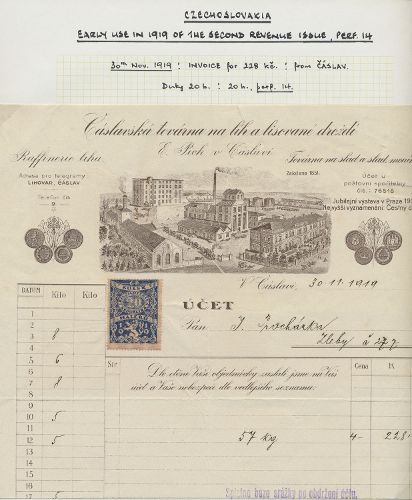 CZECHOSLOVAKIA
EARLY USE IN 1919 OF THE SECOND REVENUE ISSUE, PERF. 14
30TH Nov. 1919 : INVOICE for 228 Kč. : from ČÁSLAV.
Duty 20 h. : 20 h. perf. 14.
Čáslavská továrna na líh a lisované droždí
E. Pech v Čáslavi
Raffinerie lihu
Továrna na slad a slad.
Adresa pro telegramy
LIHOVAR, ČÁSLAV
Telefon čís.
Založeno 1851.
Účet u
poštovní spořitelny
čís.: 76518
Jubilejní výstava v Praze
Nejvyšší vyznamenání:
V Čáslavi, 30 11. 1919
ÚČET
Pán J. Procházka
Žleby
DATUM Kilo Kilo
1
2
3 8
4
5 6
6
7 8
8
9
10 5
11
12 5
13
14
15
16
17 5
Dle ctěné Vaší objednávky zaslali jsme na Váš
účet a Vaše nebezpečí dle vedlejšího seznamu:
Cena K
57 kg 4- 228
Splatno beze srážky po obdržení účtu.